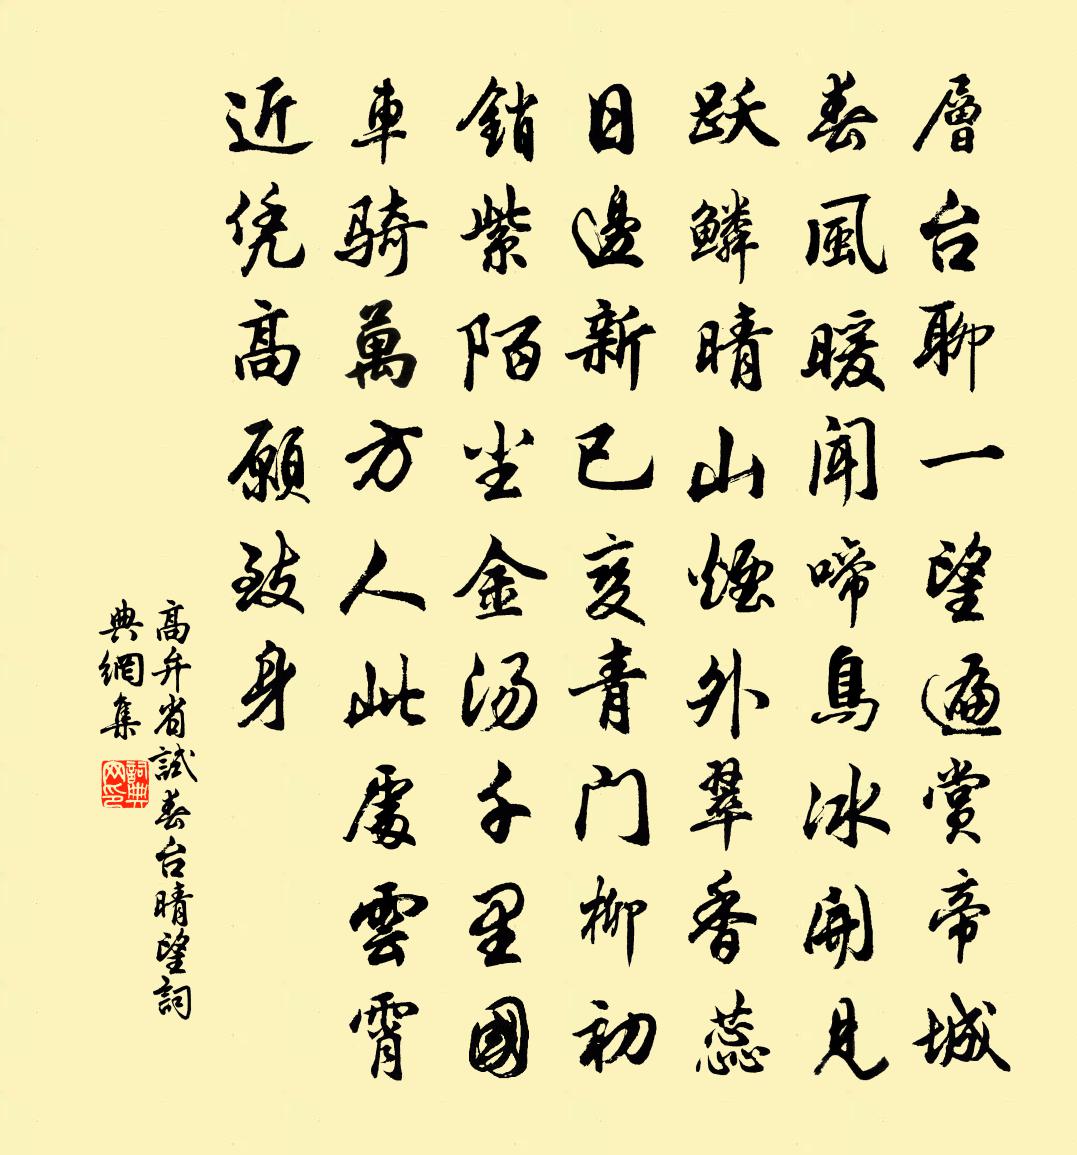 層台聊一望遍賞帝城
春風暖聞啼鳥冰開見
跃鱗晴山煙外翠香蕊
日邊新已变青門柳初
銷紫陌尘金湯千里國
車騎萬方人此處雲霄
近凭高願致身
高弁省試春台晴望詞
典網集
詞典
网印